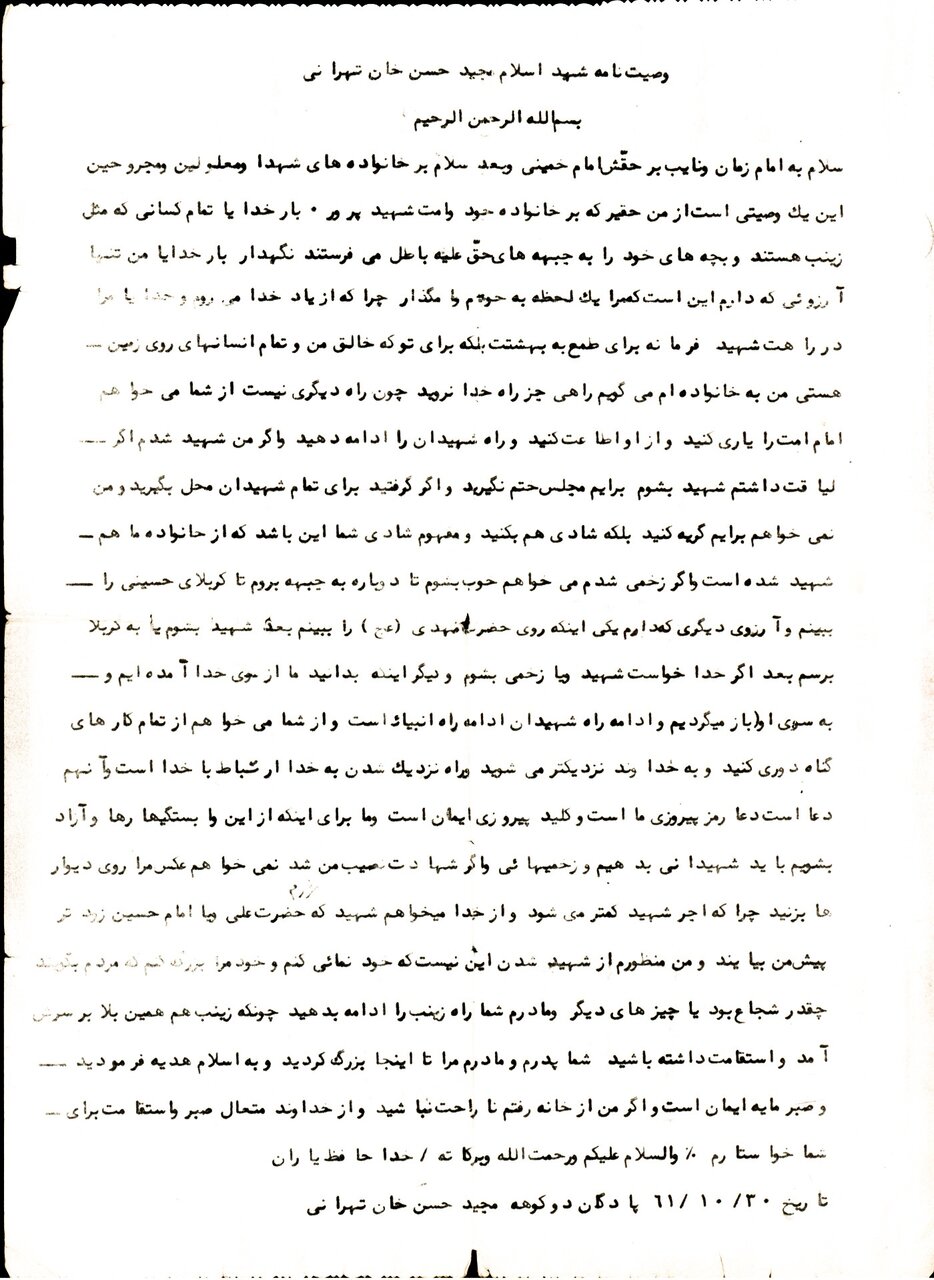 وصیت‌نامه شهید اسلام مجید حسن خان تهرانی
بسم‌الله الرحمن الرحیم
سلام به امام زمان ونایب بر حقّش‌امام خمینی وبعد سلام بر خانواده های شهدا ومعلولین ومجروحین
این یك وصیتی است‌از من حقیر که بر خانواده خود وامت‌شهید پرور ۰ بار خدا یا تمام کسانی که مثل
زینب هستند و بچه های خود را به جبهه های‌حقّ علیه باطل می فرستند نگهدار بار خدایا من تنها
آرزوئی که دارم این است‌که‌مرا یك لحظه به خودم وا مگذار چرا که از یاد خدا می روم و خدا یا مرا
در را هت‌شهید فرما نه برای طمع به بهشتت‌بلکه برای تو که خالق من و تمام انسانهای روی زمین ــ
هستی من به خانواده ام می گویم راهی جز راه خدا نروید چون راه دیگری نیست از شما می خواهم
امام امت‌را یاری کنید و از او اطاعت‌کنید و راه شهیدان را ادامه دهید واگر من شهید شدم اگر ــ
لیاقت‌داشتم شهید بشوم برایم مجلس‌ختم نگیرید و اگر گرفتید برای تمام شهیدان محل بگیرید و من
نمی خواهم برایم گریه کنید بلکه شادی هم بکنید و مفهوم شادی شما این باشد که از خانواده ما هم ــ
شهید شده است‌واگر زخمی شدم می خواهم خوب بشوم تا دوباره به جبهه بروم تا کربلای حسینی را ــ
ببینم و آرزوی دیگری که‌دارم یکی اینکه روی حضرت مهدی (عج) را ببینم بعدا شهید بشوم یا به کربلا
برسم بعد اگر خدا خواست شهید ویا زخمی بشوم و دیگر اینکه بدانید ما از سوی خدا آمده ایم و ــ
به سوی او باز میگردیم و ادامه راه شهیدان ادامه راه انبیاء است و از شما می خواهم از تمام کار های
گناه دوری کنید و به خدا وند نزدیکتر می شوید وراه نزدیك شدن به خدا ارتباط با خدا است وآنهم
دعا است‌دعا رمز پیروزی ما است و کلید پیروزی ایمان است وما برای اینکه از این وا بستگیها رها و آزاد
بشویم باید شهیدانی بدهیم و زخمیهائی واگر شهادت نصیب من شد نمی خواهم عکس مرا روی دیوار
ها بزنید چرا که اجر شهید کمتر می شود و از خدا میخواهم شهید که حضرت‌علی ویا امام حسین زود تر
پیش‌من بیایند و من منظورم از شهید شدن این نیست‌که خود نمائی کنم و خود مرا بزرگ کنم که مردم بگویند
چقدر شجاع بود یا چیز های دیگر ومادرم شما راه زینب را ادامه بدهید چونکه زینب هم همین بلا بر سرش
آمد و استقامت داشته باشید شما پدرم و مادرم مرا تا اینجا بزرگ کردید و به اسلام هدیه فرمودید ــ
و صبر مایه ایمان است و اگر من از خانه رفتم ناراحت نباشید و از خداوند متعال صبر واستقامت برای ــ
شما خواستارم ٪ والسلام علیکم ورحمت‌الله وبرکاته / خدا حافظ یا ران
تاریخ ۳۰/ ۱۰ /۶۱ پادگان دوکوهه مجید حسن خان تهرانی